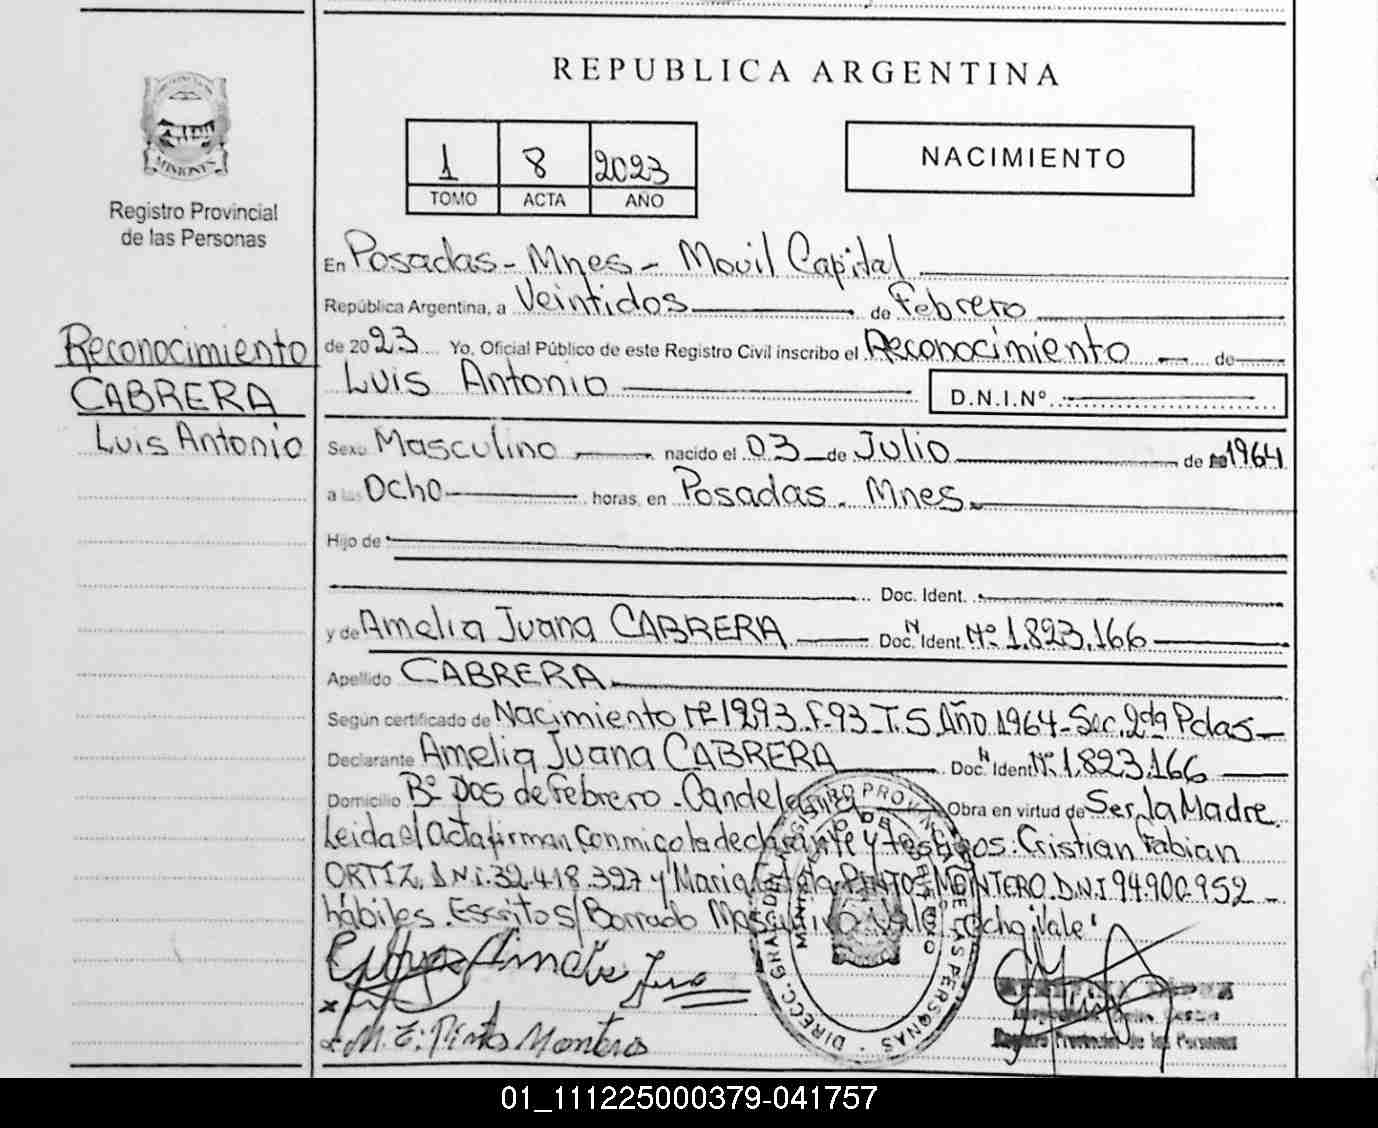 REPUBLICA ARGENTINA
MISIONES
Registro Provincial
de las Personas
1 8 2023
TOMO ACTA AÑO
NACIMIENTO
Reconocimiento
CABRERA
Luis Antonio
En Posadas - Mnes - Movil Capital
República Argentina, a Veintidos de Febrero
de 2023 Yo, Oficial Público de este Registro Civil inscribo el Reconocimiento de
Luis Antonio D.N.I.Nº
Sexo Masculino nacido el 03 de Julio de 1964
a las Ocho horas, en Posadas - Mnes
Hijo de
Doc. Ident.
y de Amelia Juana CABRERA Doc. N Ident. Nº 1.823.166
Apellido CABRERA
Según certificado de Nacimiento Nº 1293 F-93 T.5 Año 1964 - Sec. 2da Pdas
Declarante Amelia Juana CABRERA Doc. N Ident. Nº 1.823.166
Domicilio Bº Dos de Febrero - Candelaria Obra en virtud de Ser la Madre.
Leida el Acta firman conmigo la declarante y testigos: Cristian Fabian
ORTIZ, D.N.I. 32.418.327 y Maria PINTOS MONTERO D.N.I 94.900.952
hábiles. Escritos/Borrado Masculino Vale ocho Vale
M. E. Pintos Montero
Registro Provincial de las Personas
01_111225000379-041757